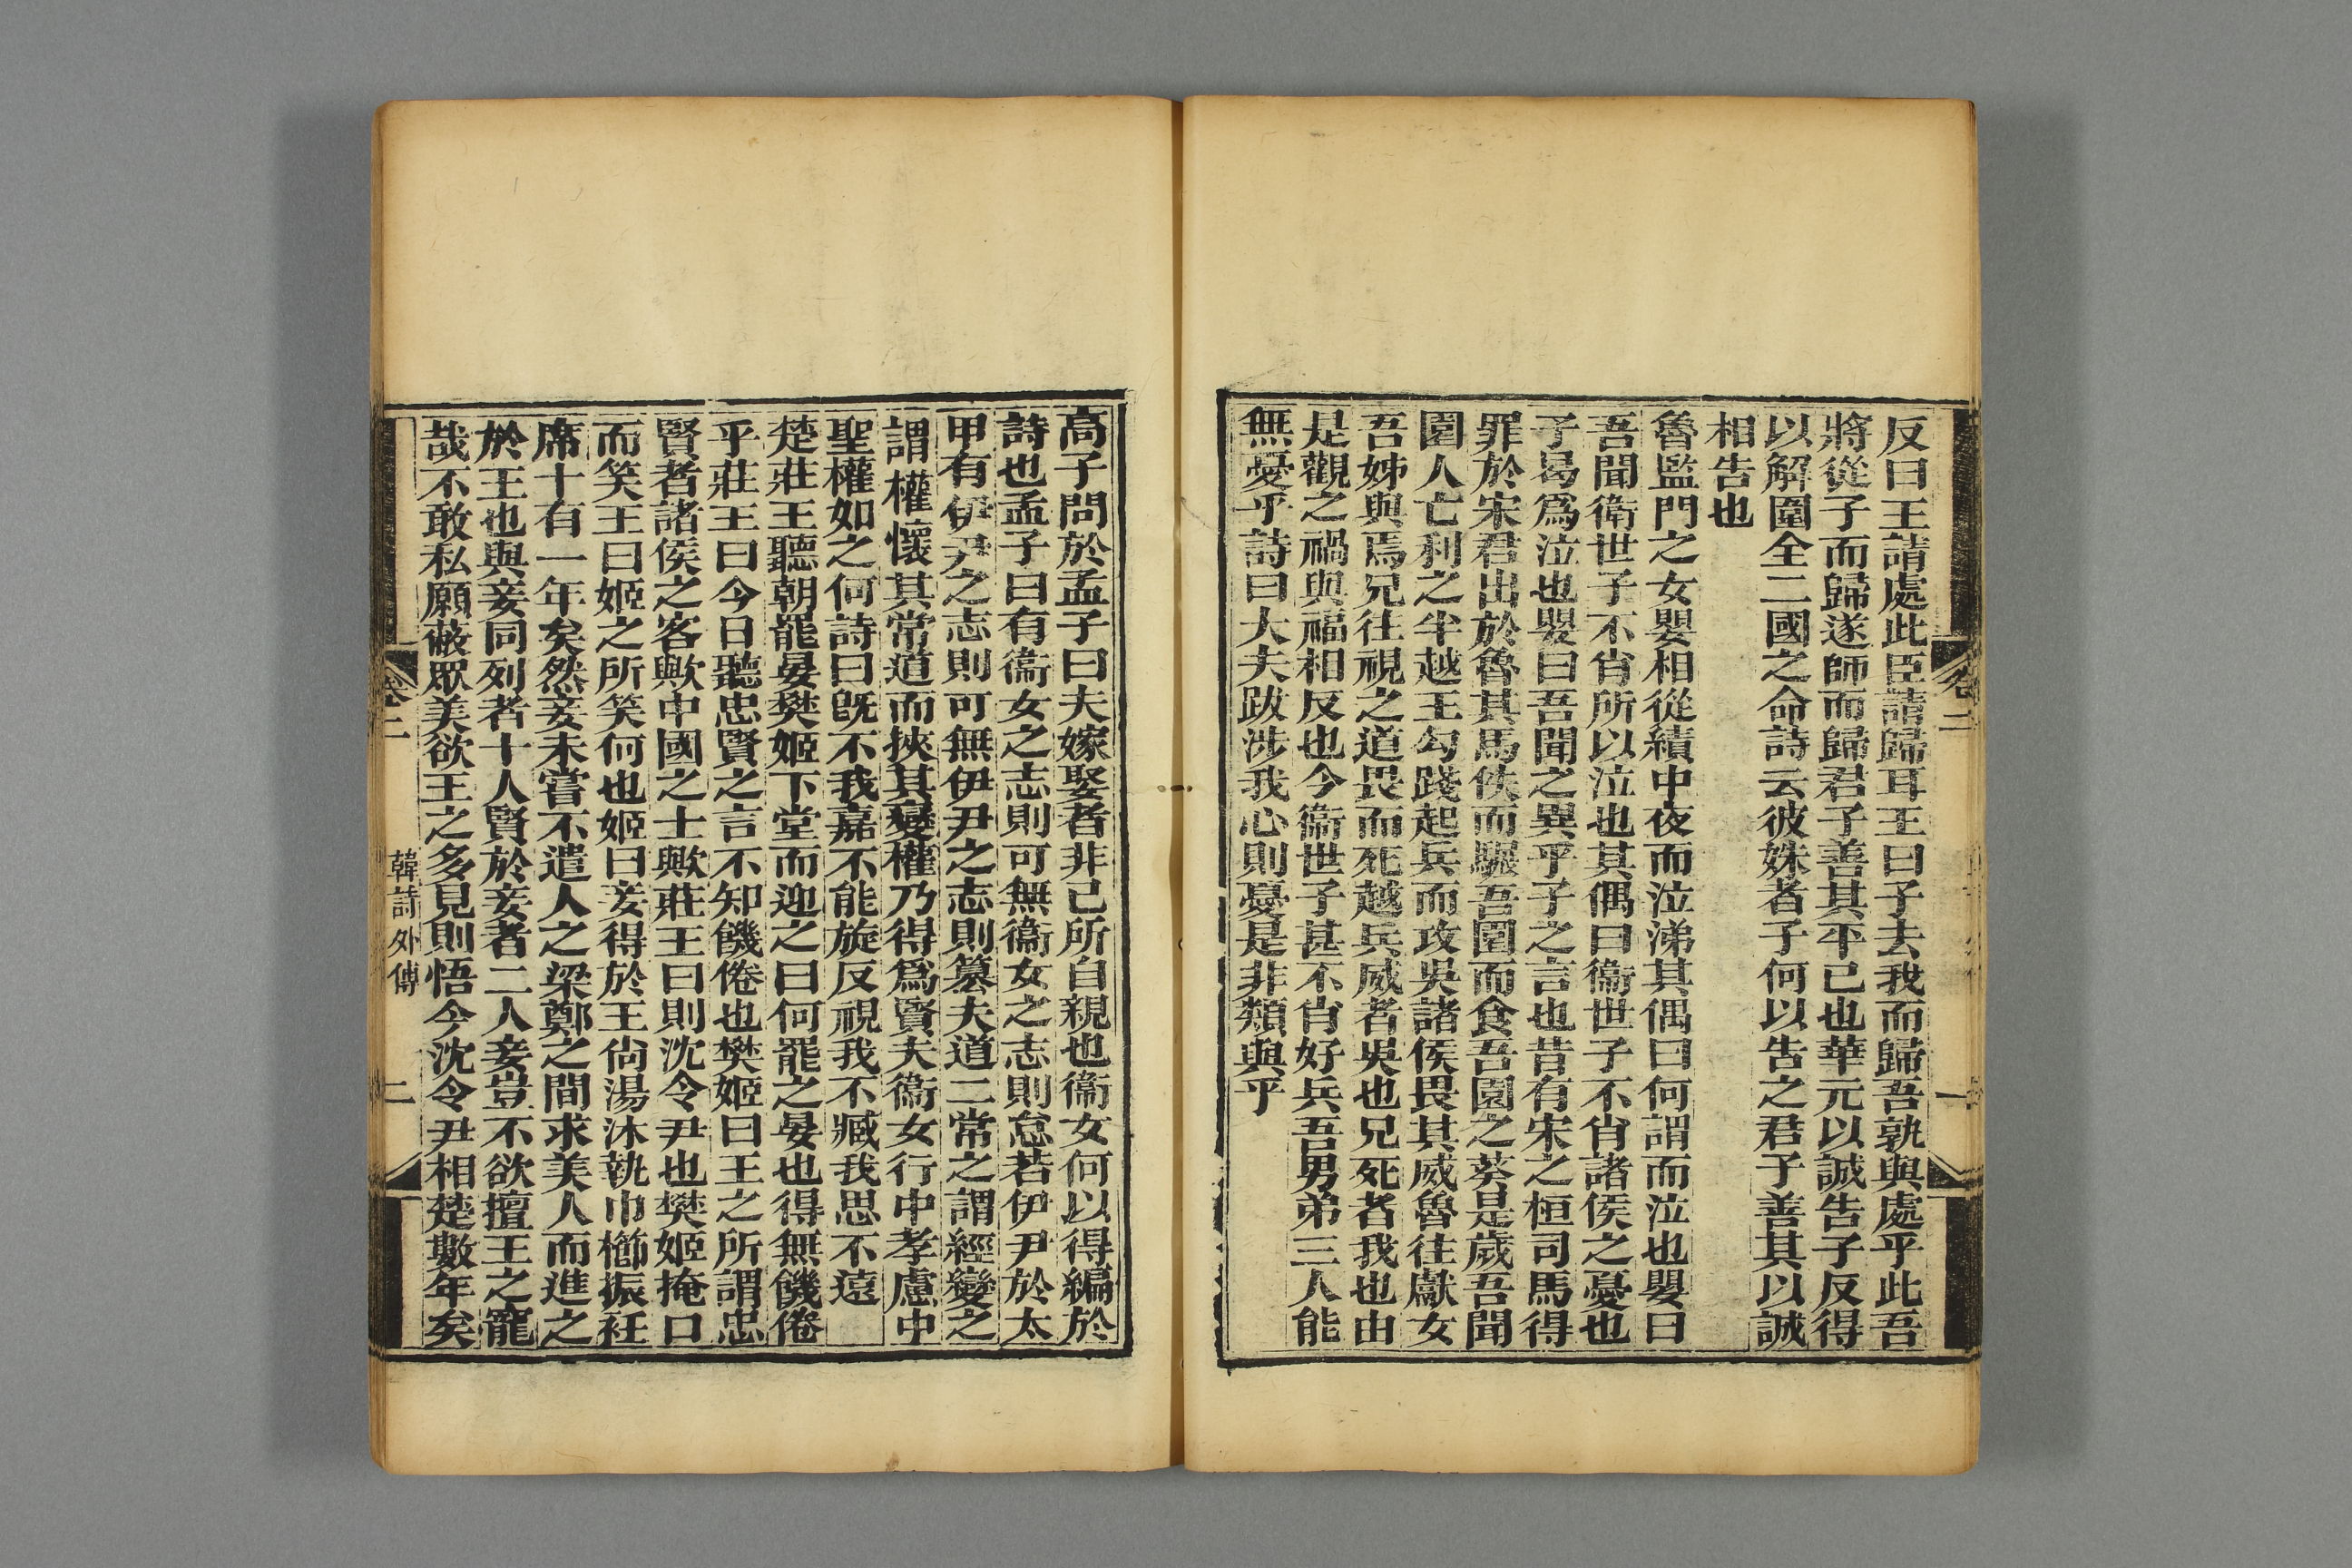 卷二
一
反曰王請處此臣請歸耳王曰子去我而歸吾孰與處乎此吾
將從子而歸遂師而歸君子善其平已也華元以誠告子反得
以解圍全二國之命詩云彼姝者子何以告之君子善其以誠
相告也
魯監門之女嬰相從績中夜而泣涕其偶曰何謂而泣也嬰曰
吾聞衛世子不肖所以泣也其偶曰衞世子不肖諸侯之憂也
子曷爲泣也嬰曰吾聞之異乎子之言也昔有宋之桓司馬得
罪於宋君出於魯其馬佚而驟吾園而食吾園之葵是歲吾聞
園人亡利之半越王勾踐起兵而攻吳諸侯畏其威魯往獻女
吾姊與焉兄往視之道畏而死越兵威者吳也兄死者我也由
是觀之禍與福相反也今衞世子甚不肖好兵吾男弟三人能
無憂乎詩曰大夫跋涉我心則憂是非類與乎
高子問於孟子曰夫嫁娶者非己所自親也衞女何以得編於
詩也孟子曰有衞女之志則可無衞女之志則怠若伊尹於太
甲有伊尹之志則可無伊尹之志則篡夫道二常之謂經變之
謂權懷其常道而挾其變權乃得爲賢夫衞女行中孝慮中
聖權如之何詩曰旣不我嘉不能旋反視我不臧我思不遠
楚莊王聽朝罷晏樊姬下堂而迎之曰何罷之晏也得無饑倦
乎莊王曰今日聽忠賢之言不知饑倦也樊姬曰王之所謂忠
賢者諸侯之客歟中國之士歟莊王曰則沈令尹也樊姬掩口
而笑王曰姬之所笑何也姬曰妾得於王尙湯沐執巾櫛振衽
席十有一年矣然妾未嘗不遣人之梁鄭之間求美人而進之
於王也與妾同列者十人賢於妾者二人妾豈不欲擅王之寵
哉不敢私願蔽眾美欲王之多見則悟今沈令尹相楚數年矣
卷二
韓詩外傳
二